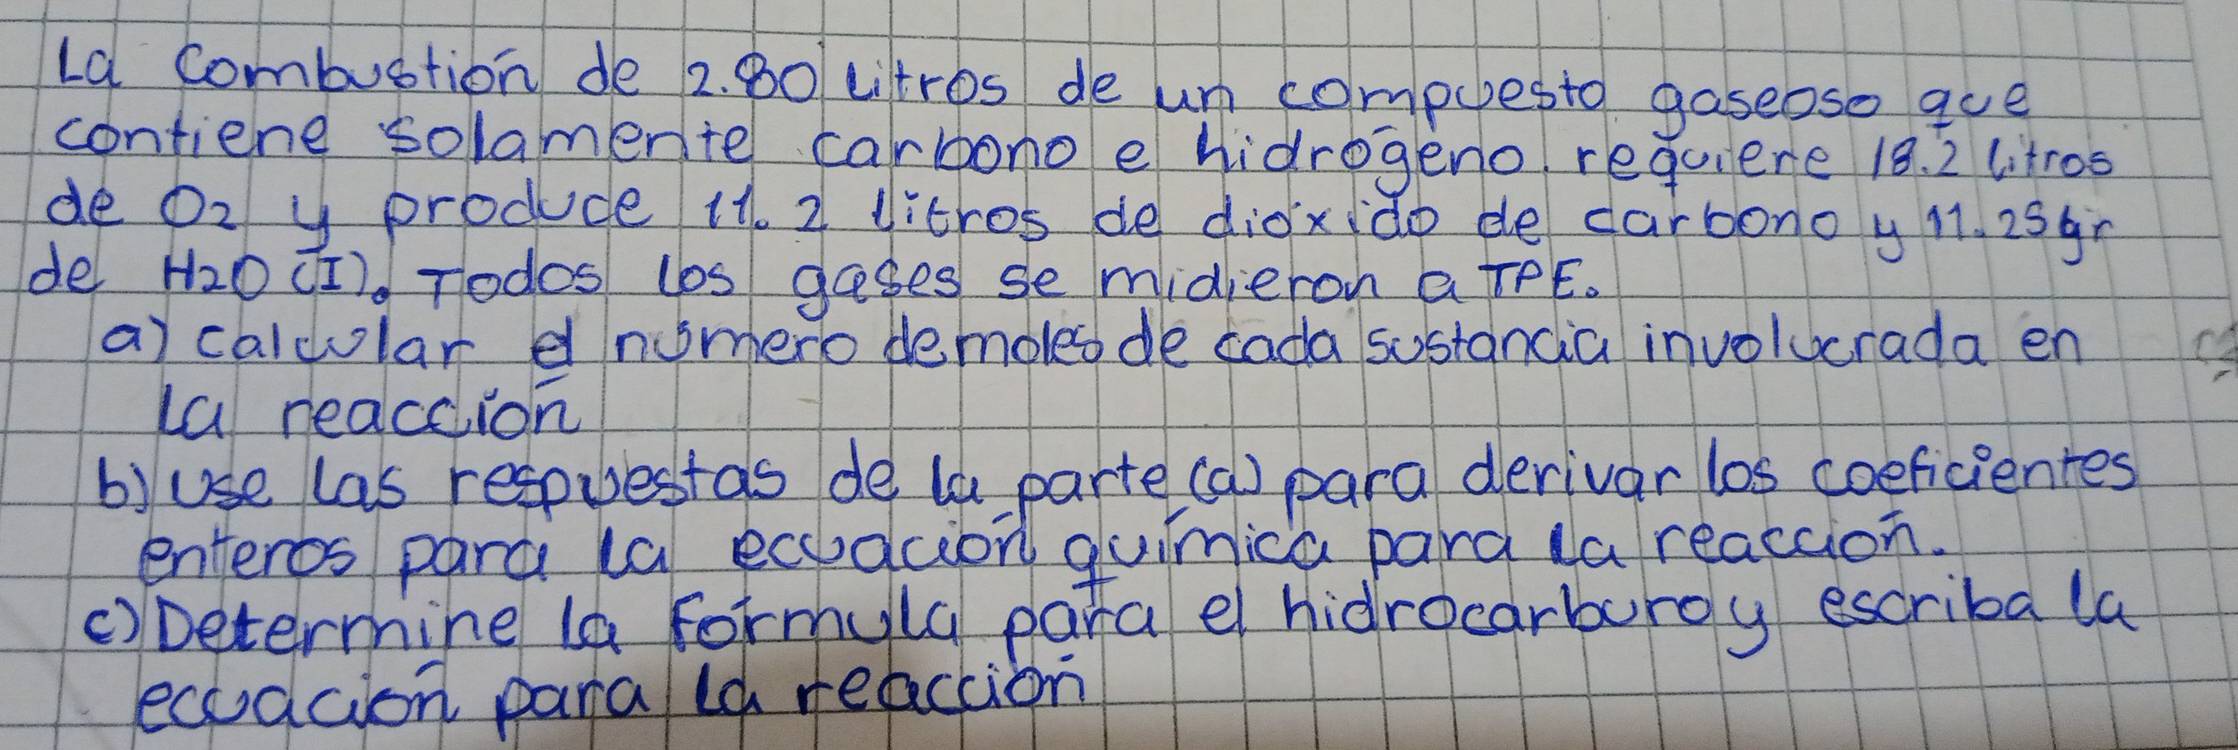 La combustión de 2.80 litros de un compuesto gaseoso que
contiene solamente carbono e hidrógeno. requiere 18.2 litros
de O2 y produce 11.2 litros de dioxido de carbono y 11.25 gr
de H2O (I). Todos los gases se midieron a TPE.
a) calcular el número de moles de cada sustancia involucrada en
la reacción
b) Use las respuestas de la parte (a) para derivar los coeficientes
enteros para la ecuación química para la reacción.
c) Determine la fórmula para el hidrocarburo y escriba la
ecuación para la reacción